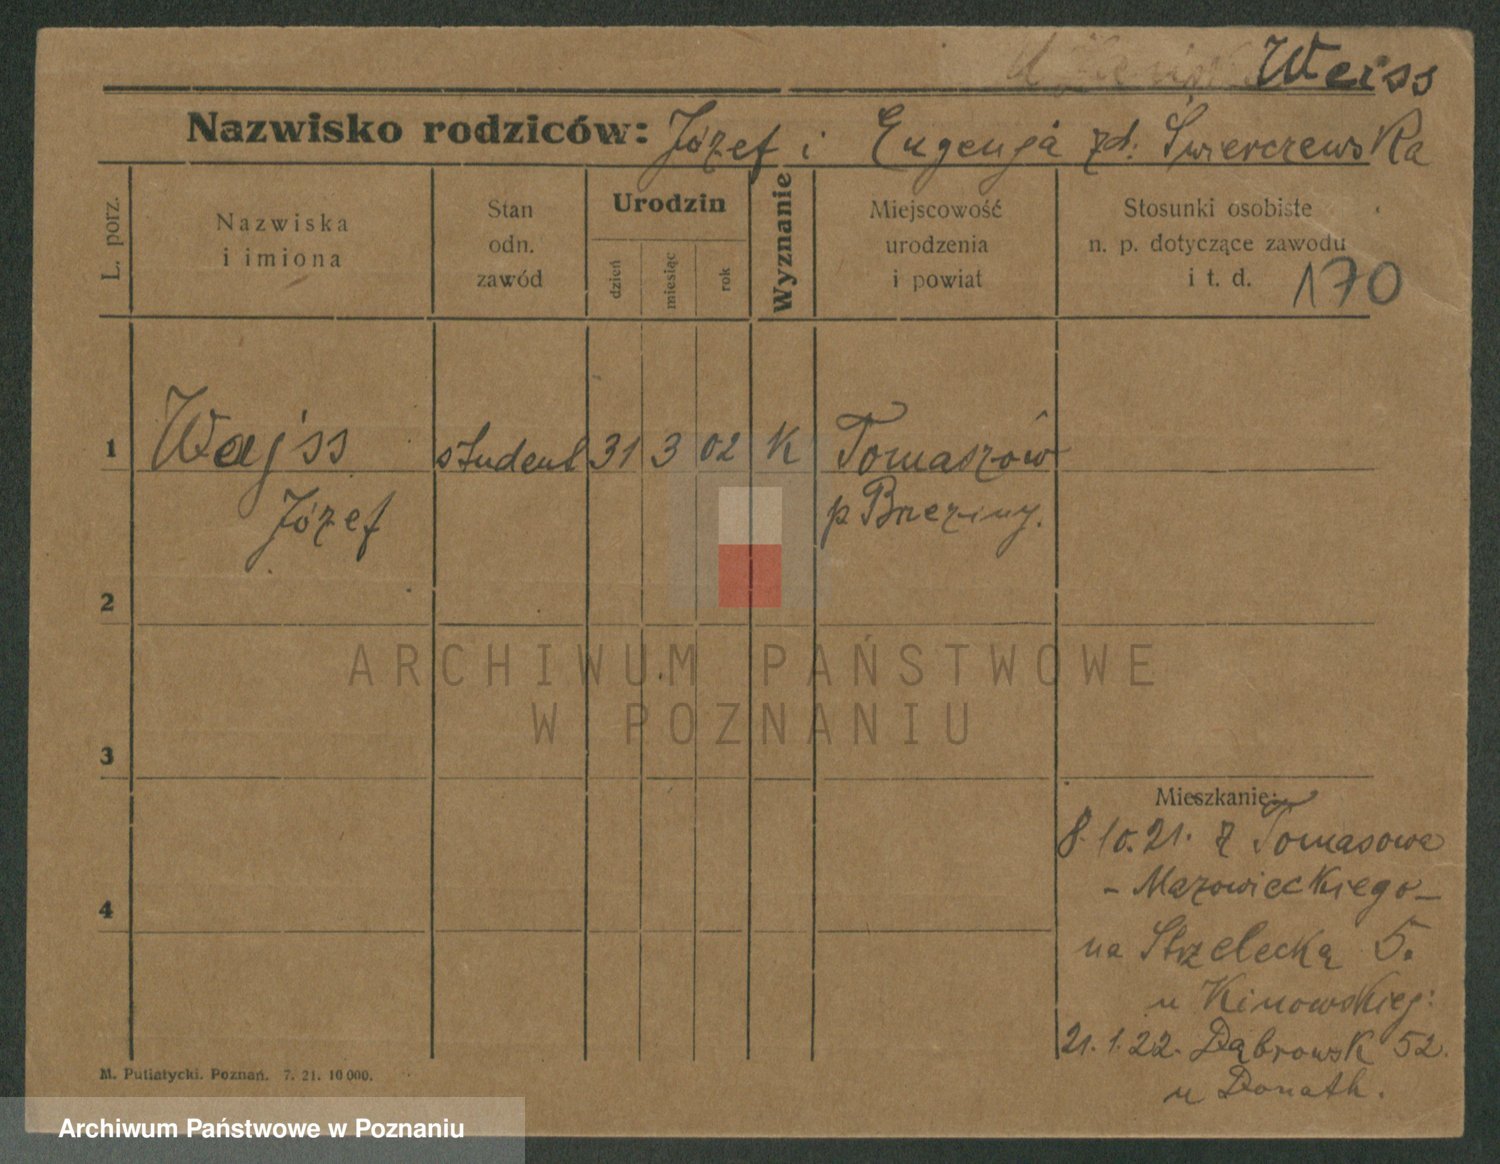 Weiss
Nazwisko rodziców: Józef i Eugenja zd. Świerczewska
L. porz.
Nazwiska
i imiona
Stan
odn.
zawód
Urodzin
dzień
miesiąc
rok
Wyznanie
Miejscowość
urodzenia
i powiat
Stosunki osobiste
n. p. dotyczące zawodu
i t. d.
170
1 Wajss student 31 3 02 K Tomaszów
Józef p Brzeziny.
2
3
ARCHIWUM PAŃSTWOWE
W POZNANIU
Mieszkanie:
8.10.21. z Tomasowa
- Mazowieckiego -
na Strzelecką 5.
u Kinowskiej:
21.1.22. Dąbrowsk 52.
u Donath.
4
M. Putiatycki. Poznań. 7. 21. 10 000.
Archiwum Państwowe w Poznaniu